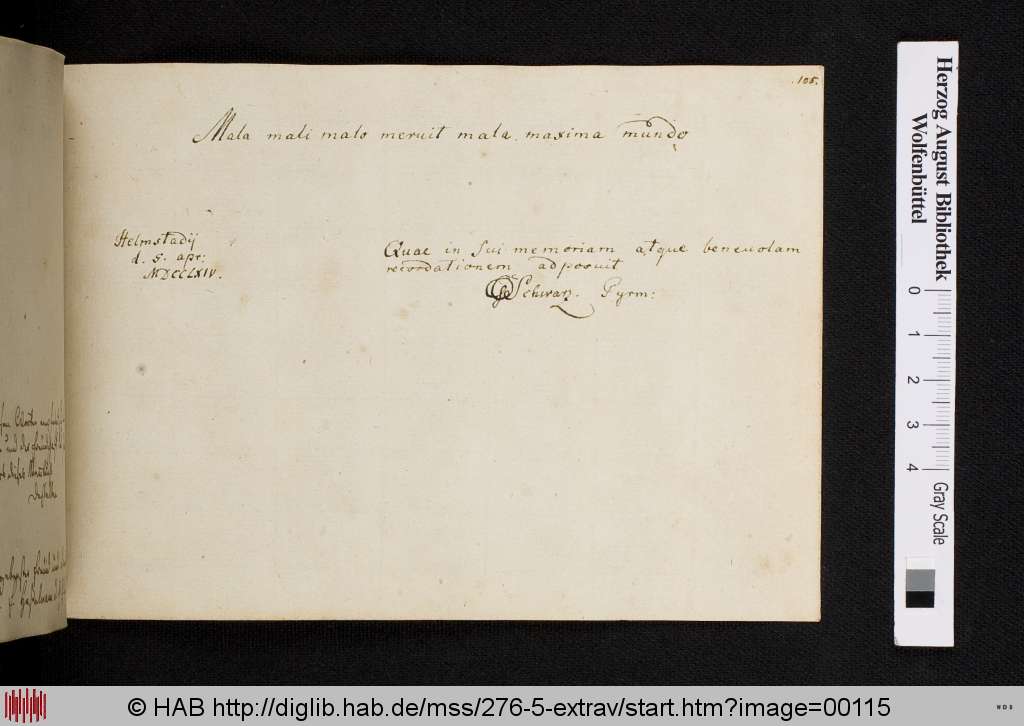 105.
Mala mali malo meruit mala maxima mundo
Helmstadij
d. 5. apr:
MDCCLXIV.
Quae in sui memoriam atque benevolam
recordationem adposuit
Schwarz. Pyrm:
Herzog August Bibliothek
Wolfenbüttel
0
1
2
3
4
Gray Scale
© HAB http://diglib.hab.de/mss/276-5-extrav/start.htm?image=00115